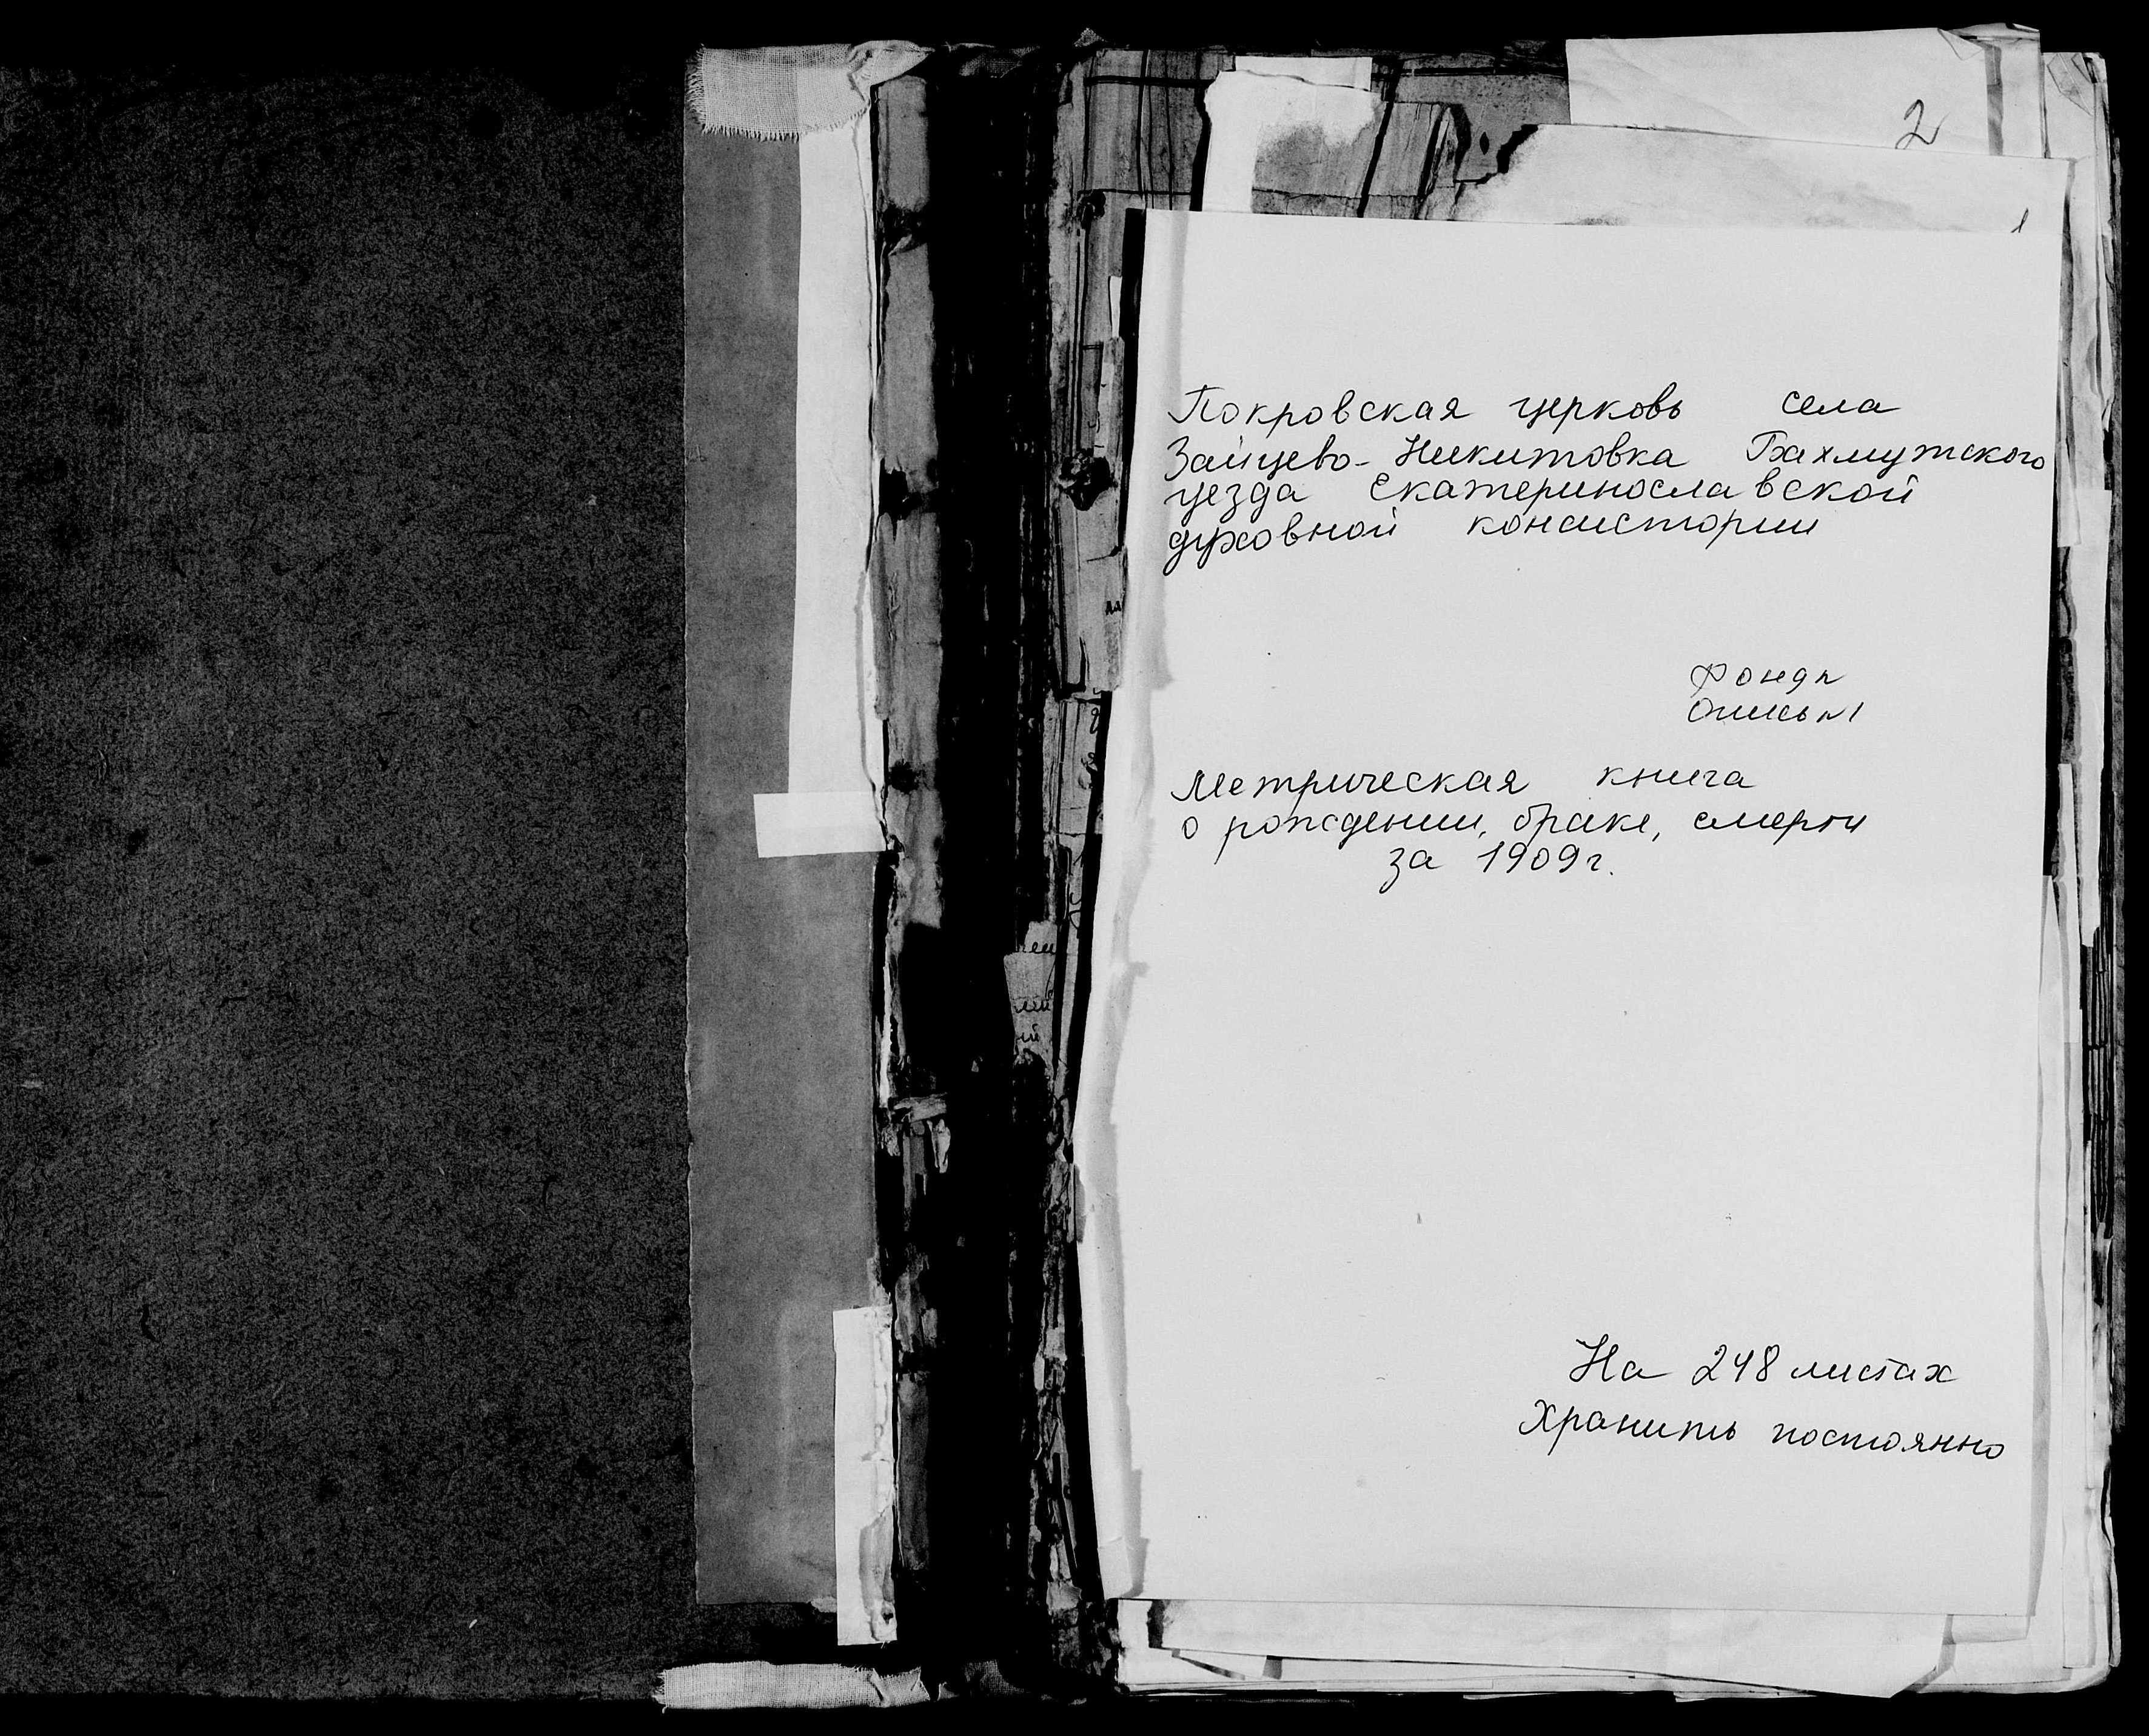 2
1
Покровская церковь села
Зайцево-Никитовка Бахмутского
уезда Екатеринославской
духовной консистории
Фонд №
Опись №1
Метрическая книга
о рождении, браке, смерти
за 1909г.
На 248 листах
Хранить постоянно